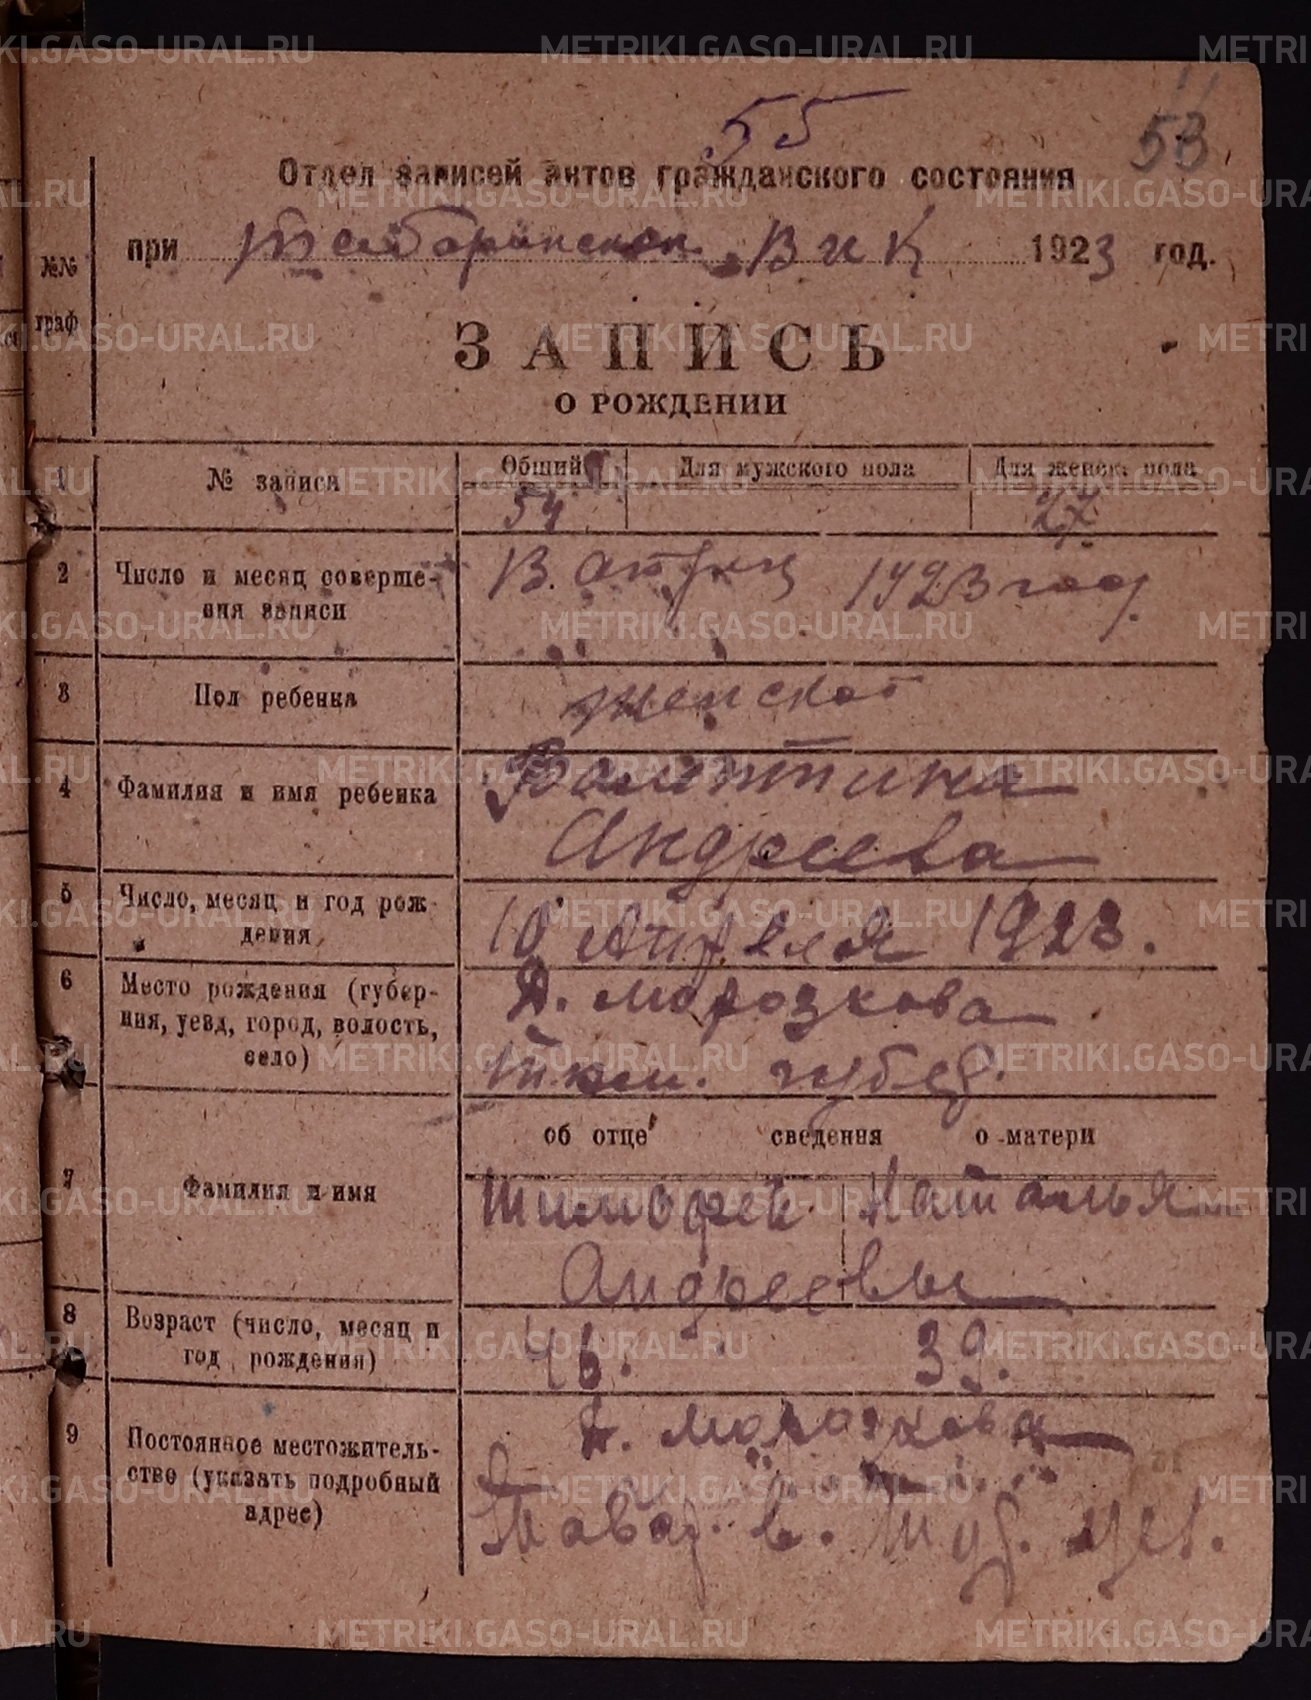 55
53
Отдел записей актов гражданского состояния
при Таборинском ВИК 1923 год.
№№ граф
ЗАПИСЬ
О РОЖДЕНИИ
1 № записи Общий Для мужского пола Для женск. пола
54 27
2 Число и месяц совершения записи
1923 год.
3 Пол ребенка женской
4 Фамилия и имя ребенка Валинтина
Андреева
5 Число, месяц и год рож-
дения 10 Апреля 1923.
6 Место рождения (губер-
ния, уезд, город, волость,
село)
Д. Морозкова
Тюм. губер.
об отце сведения о матери
7 Фамилия и имя Тимофей Наталья
Андреевы
8 Возраст (число, месяц и
год рождения) 46. 39.
9 Постоянное местожитель-
ство (указать подробный
адрес)
д. Морозкова
Табор. в. Тур. уез.
METRIKI.GASO-URAL.RU